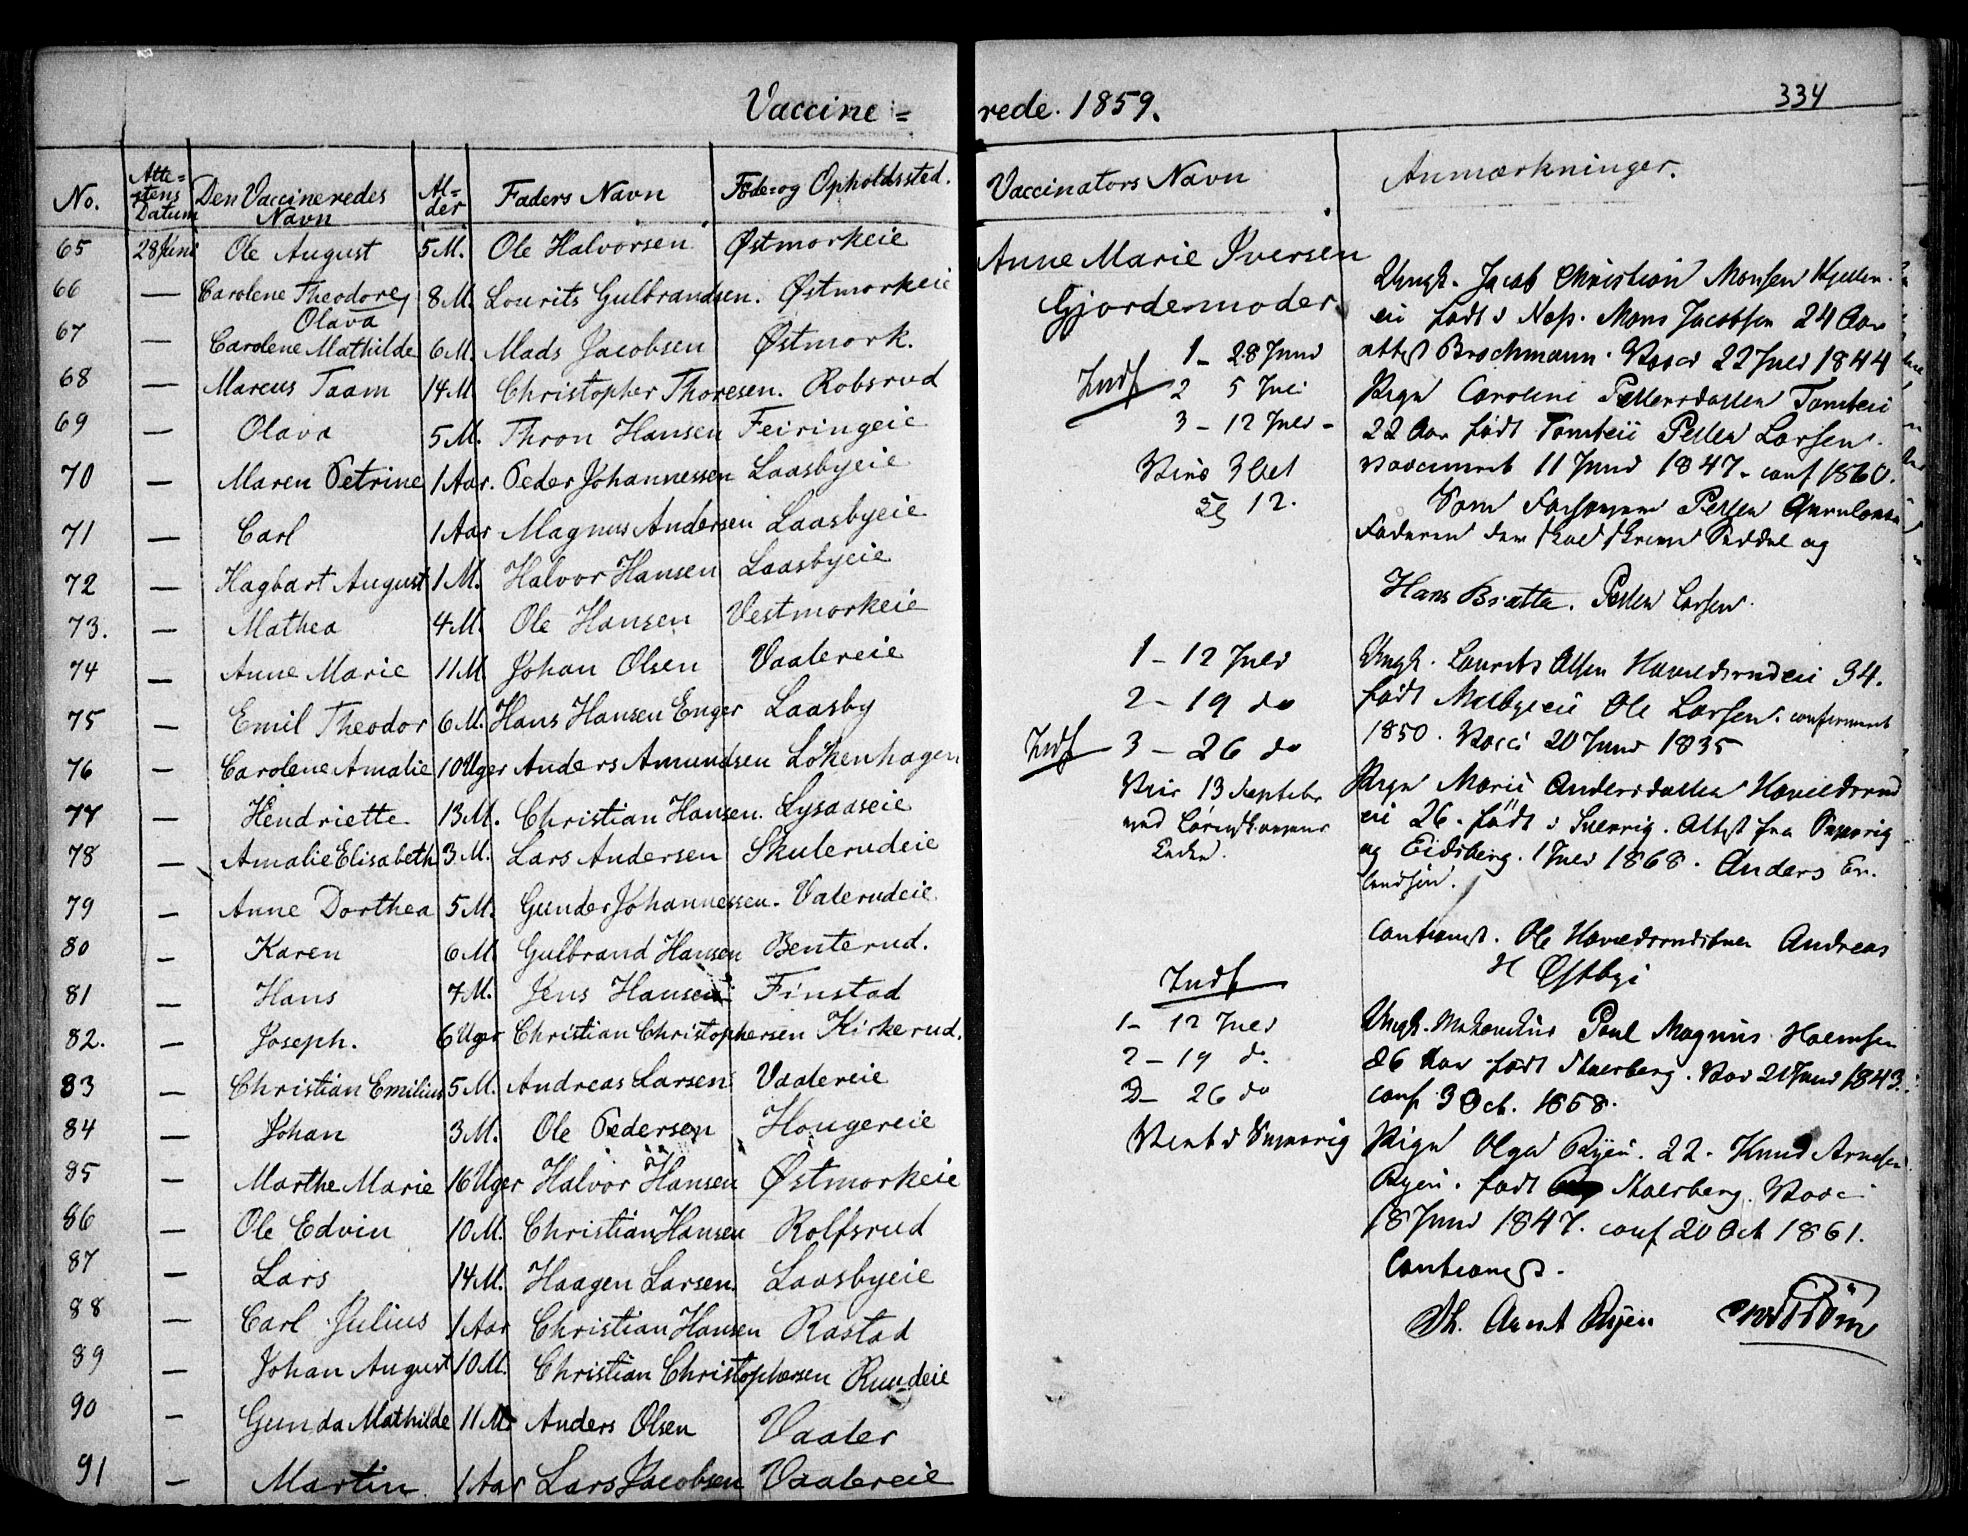 Vaccine = rede. 1859.
334
No. | Atte= stens Datum | Den Vaccineredes Navn | Al= der | Faders Navn | Føde= og Opholdssted. | Vaccinators Navn | Anmærkninger.
65 28 Juni Ole August 5 M. Ole Halvorsen Østmorkeie
66 — Carolene Theodore Olava 8 M. Lourits Gulbrandsen. Østmorkeie
67 — Carolene Mathilde 6 M. Mads Jacobsen Østmork.
68 — Marcus Taam 14 M Christopher Thoresen. Robsrud
69 — Olava 5 M. Thron Hansen Feiringeie
70 — Maren Petrine 1 Aar. Peder Johannessen Laasbyeie
71 — Carl 1 Aar Magnus Andersen Laasbyeie
72 — Hagbart August 1 M. Halvor Hansen Laasbyeie
73. — Mathea 4 M. Ole Hansen Vestmorkeie
74 — Anne Marie 11 M. Johan Olsen Vaalereie
75 — Emil Theodor 6 M. Hans Hansen Enger Laasby
76 — Carolene Amalie 10 Uger Anders Amundsen Løkenhagen
77 — Hendriette 13 M. Christian Hansen. Lysaaseie
78 — Amalie Elisabeth 3 M. Lars Andersen Skulerudeie
79 — Anne Dorthea 5 M. Gunder Johannessen. Valerudeie.
80 — Karen 6 M. Gulbrand Hansen Benterud.
81 — Hans 7 M. Jens Hansen Finstad
82. — Joseph. 6 Uger Christian Christophersen Kirkerud.
83 — Christian Emilius 5 M. Andreas Larsen Vaalereie
84 — Johan 3 M. Ole Pedersen Hougereie
85 — Marthe Marie 16 Uger Halvor Hansen Østmorkeie
86 — Ole Edvin 10 M. Christian Hansen Rolfsrud
87 — Lars 14 M. Haagen Larsen. Laasbyeie
88 — Carl Julius 1 Aar Christian Hansen Rastad
89 — Johan August 10 M. Christian Christophersen Rundeie
90 — Gunda Mathilde 11 M. Anders Olsen Vaaler
91 — Martin 1 Aar Lars Jacobsen Vaalereie
Anne Marie Iversen
Gjordemoder
1 – 28 Juni
Indf 2 5 Juli
3 – 12 Juli –
12.
1 – 12 Juli
2 – 19 do
Indf 3 – 26 do
13 Septebr
Indf
1 – 12 Juli
2 – 19 do
26 do
Ungk. Jacob Christian Monsen
født i Næs. Mons Jacobsen 24 Aar
attest Brochmann. Vacci 22 Juli 1844
Pige Caroline Tomteii
22 Aar født Tomteii Larsen.
vaccineret 11 Juni 1847 – conf 1860.
Som
Faderen Seddel og
Hans Bratte. Larsen.
Ungk. Laurits Olsen 34.
født Ole Larsen. confirmeret
1850. Vacci 20 Juni 1835
Pige Marie Andersdatter
eie 26. født i Sverrig. Attest fra Sverrig
og Eidsberg. 1 Juli 1868. Anders Er-
landsen.
Cautionist. Ole Andreas
H Østbye
Ungk. Poul Magnus Holmsen
26 Aar født 21 Juni 1843.
conf 3 Oct. 1858.
Pige Olga Ryen. 22. Knud
Ryen. født Vacci
18 Juni 1847. conf 20 Oct 1861.
Cautionist.
Th. Arent Ryen